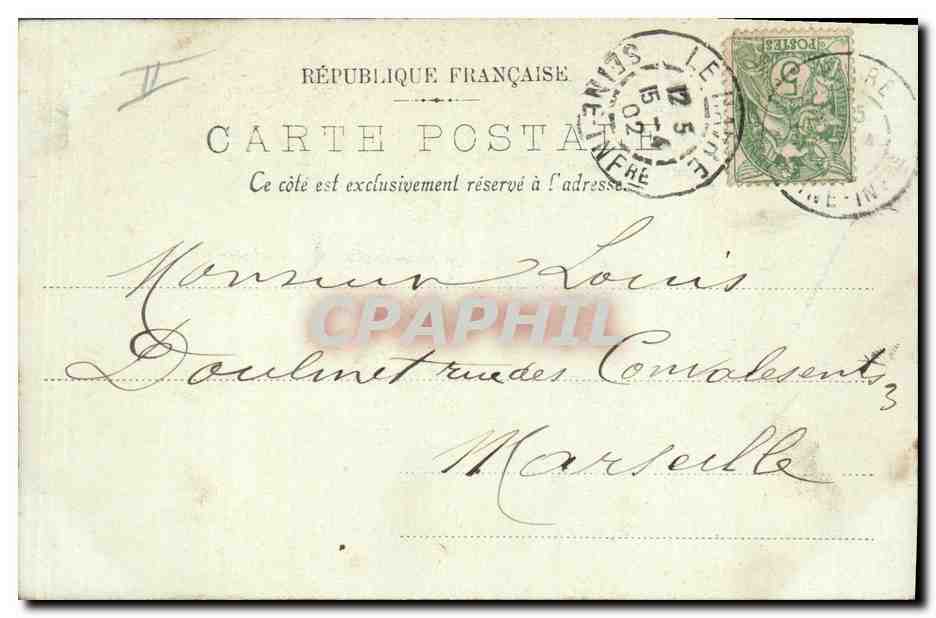 II
RÉPUBLIQUE FRANÇAISE
CARTE POSTALE
Ce côté est exclusivement réservé à l'adresse.
LE HAVRE
12 5
15 - 4
02
SEINE-INFRE
POSTES
5
Monsieur Louis
Doulmet rue des Convalesents
3
Marseille
CPAPHIL